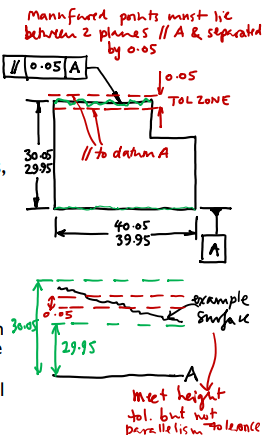 Mannfured points must lie
between 2 planes // A & separated
by 0.05
// 0.05 A
0.05
TOL ZONE
// to datum A
30.05
29.95
40.05
39.95
A
30.05
0.05
29.95
example
surface
A
meet height
tol. but not
parallelism tolerence